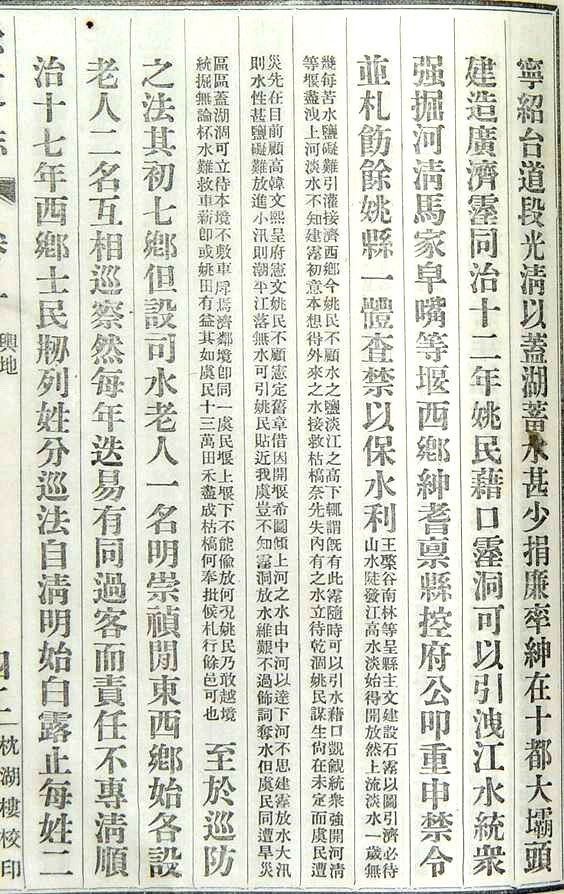 寧紹台道段光清以蓋湖蓄水甚少捐廉率紳在十都大壩頭
建造廣濟霪同治十二年姚民藉口霪洞可以引洩江水統衆
强掘河清馬家阜嘴等堰西鄉紳耆禀縣控府公叩重申禁令
並札飭餘姚縣一體查禁以保水利
王檠谷南林等呈縣主文建設石霪以圖引濟必待
山水陡發江高水淡始得開放然上流淡水一歲無
幾每苦水鹽礙難引灌接濟西鄉今姚民不顧水之鹽淡江之高下輒謂旣有此霪隨時可以引水藉口觀觎統衆強開河清
等堰盡洩上河淡水不知建霪初意本想得外來之水接救枯槁奈先失內有之水立待乾涸姚民謀生尙在未定而虞民遭
災先在目前顧高韓文熙呈府憲文姚民不顧憲定舊章借因開堰希圖傾上河之水由中河以達下河不思建霪放水大汛
則水性甚鹽礙難放進小汛則潮平江落無水可引姚民貼近我虞豈不知霪洞放水維艱不過飾詞奪水但虞民同遭旱災
區區蓋湖涸可立待本境不敷車戽焉濟鄰境卽同一虞民堰上堰下不能偷放何況姚民乃敢越境
統掘無論杯水難救車薪卽或姚田有益其如虞民十三萬田禾盡成枯槁何奉批候札行餘邑可也
至於巡防
之法其初七鄉但設司水老人一名明崇禎閒東西鄉始各設
老人二名互相巡察然每年迭易有同過客而責任不專清順
治十七年西鄉士民刱列姓分巡法自清明始白露止每姓二
輿地
四二
枕湖樓校印